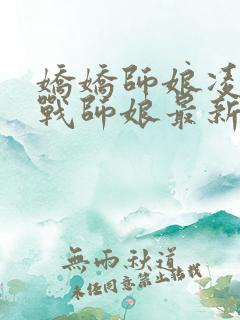 嬌嬌師娘凌
戰師娘最新
無雨秋道
未經同意禁止轉載